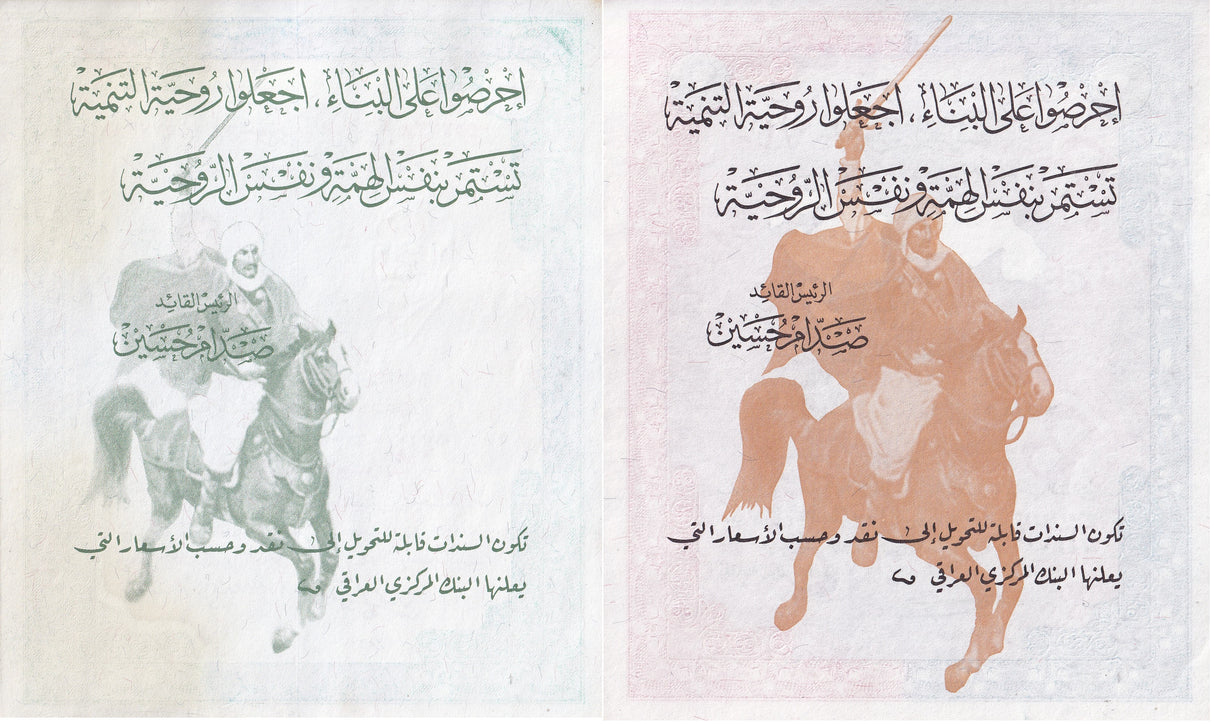 اِحْرِصُوا عَلَى الْبِنَاءِ، اجْعَلُوا رُوحِيَّةَ التَّنْمِيَةِ
تَسْتَمِرّ بِنَفْسِ الهِمَّةِ وَنَفْسِ الرُّوحِيَّةِ
الرئيس القائد
صَدَّام حُسَيْن
تكون السندات قابلة للتحويل إلى نقد وحسب الأسعار التي
يعلنها البنك المركزي العراقي
اِحْرِصُوا عَلَى الْبِنَاءِ، اجْعَلُوا رُوحِيَّةَ التَّنْمِيَةِ
تَسْتَمِرّ بِنَفْسِ الهِمَّةِ وَنَفْسِ الرُّوحِيَّةِ
الرئيس القائد
صَدَّام حُسَيْن
تكون السندات قابلة للتحويل إلى نقد وحسب الأسعار التي
يعلنها البنك المركزي العراقي